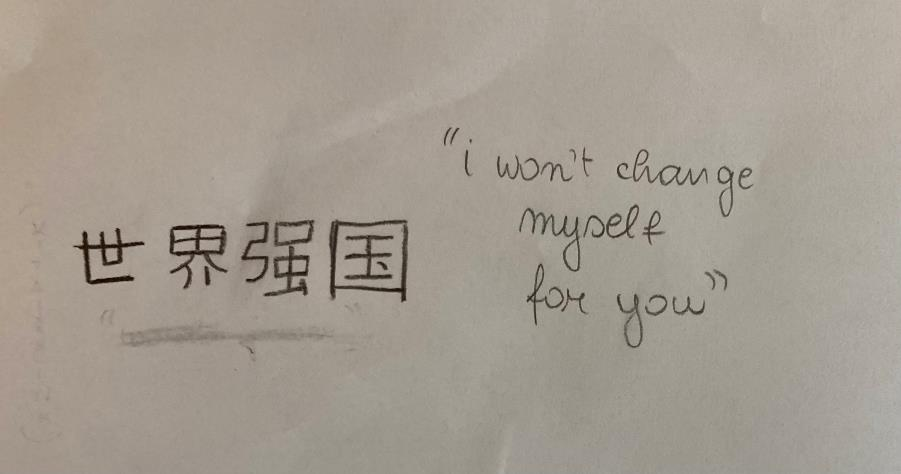 世界强国
“i won't change
myself
for you”